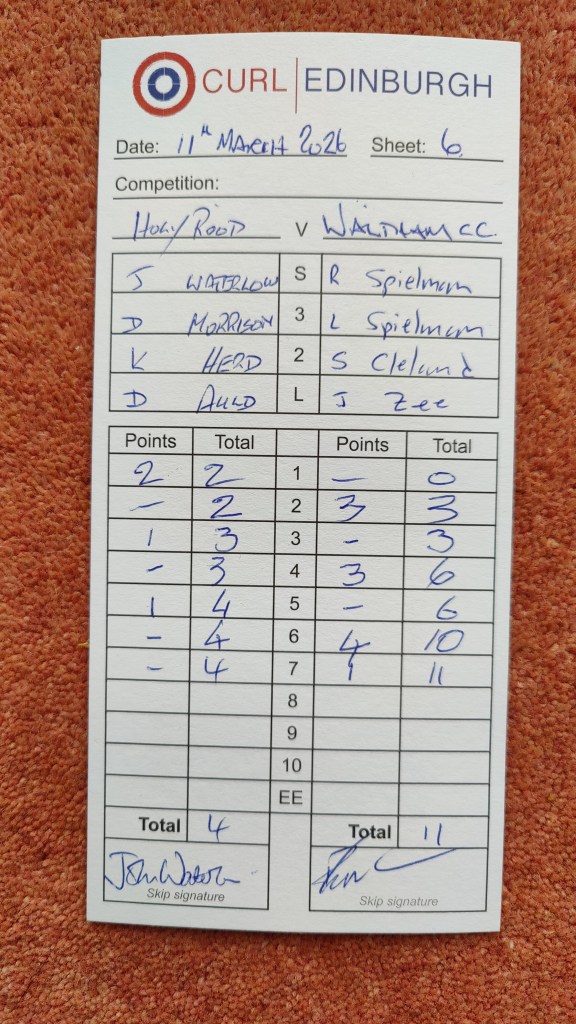 CURL | EDINBURGH
Date: 11th MARCH 2026 Sheet: 6.
Competition:
HOLYROOD V WALTHAM C.C.
J WATERLOW S R Spielman
D MORRISON 3 L Spielman
K HERD 2 S Cleland
D AULD L J Zee
Points Total Points Total
2 2 1 — 0
- 2 2 3 3
1 3 3 - 3
- 3 4 3 6
1 4 5 - 6
- 4 6 4 10
- 4 7 1 11
8
9
10
EE
Total 4 Total 11
Skip signature Skip signature